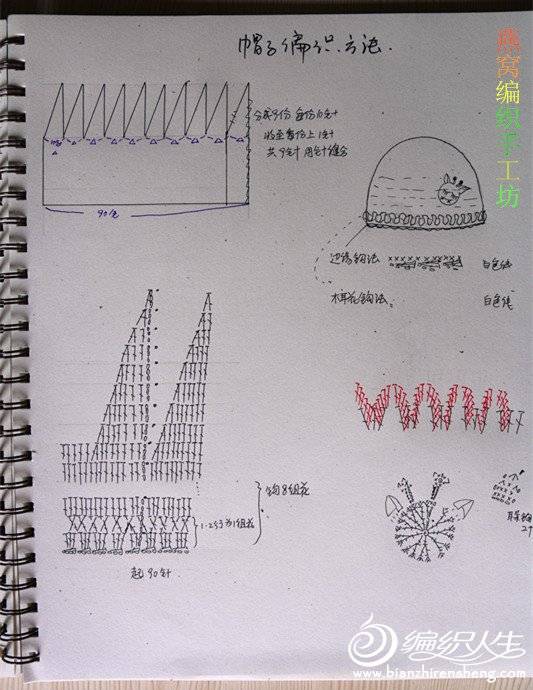 帽子编织方法.
燕窝编织手工坊
分成9份 每份10针
收至每份上1针
共9针 用针缝合
90针
边缘钩法 白色线
木耳花钩法. 白色线
钩8组花
1.2行为1组花
起90针
耳朵
2个
编织人生
www.bianzhirensheng.com